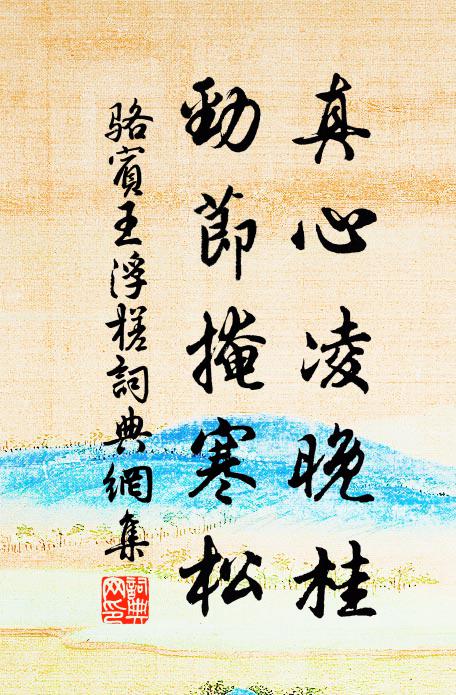 真心凌晚桂
勁節掩寒松
駱賓王浮槎詞典網集
詞典網印